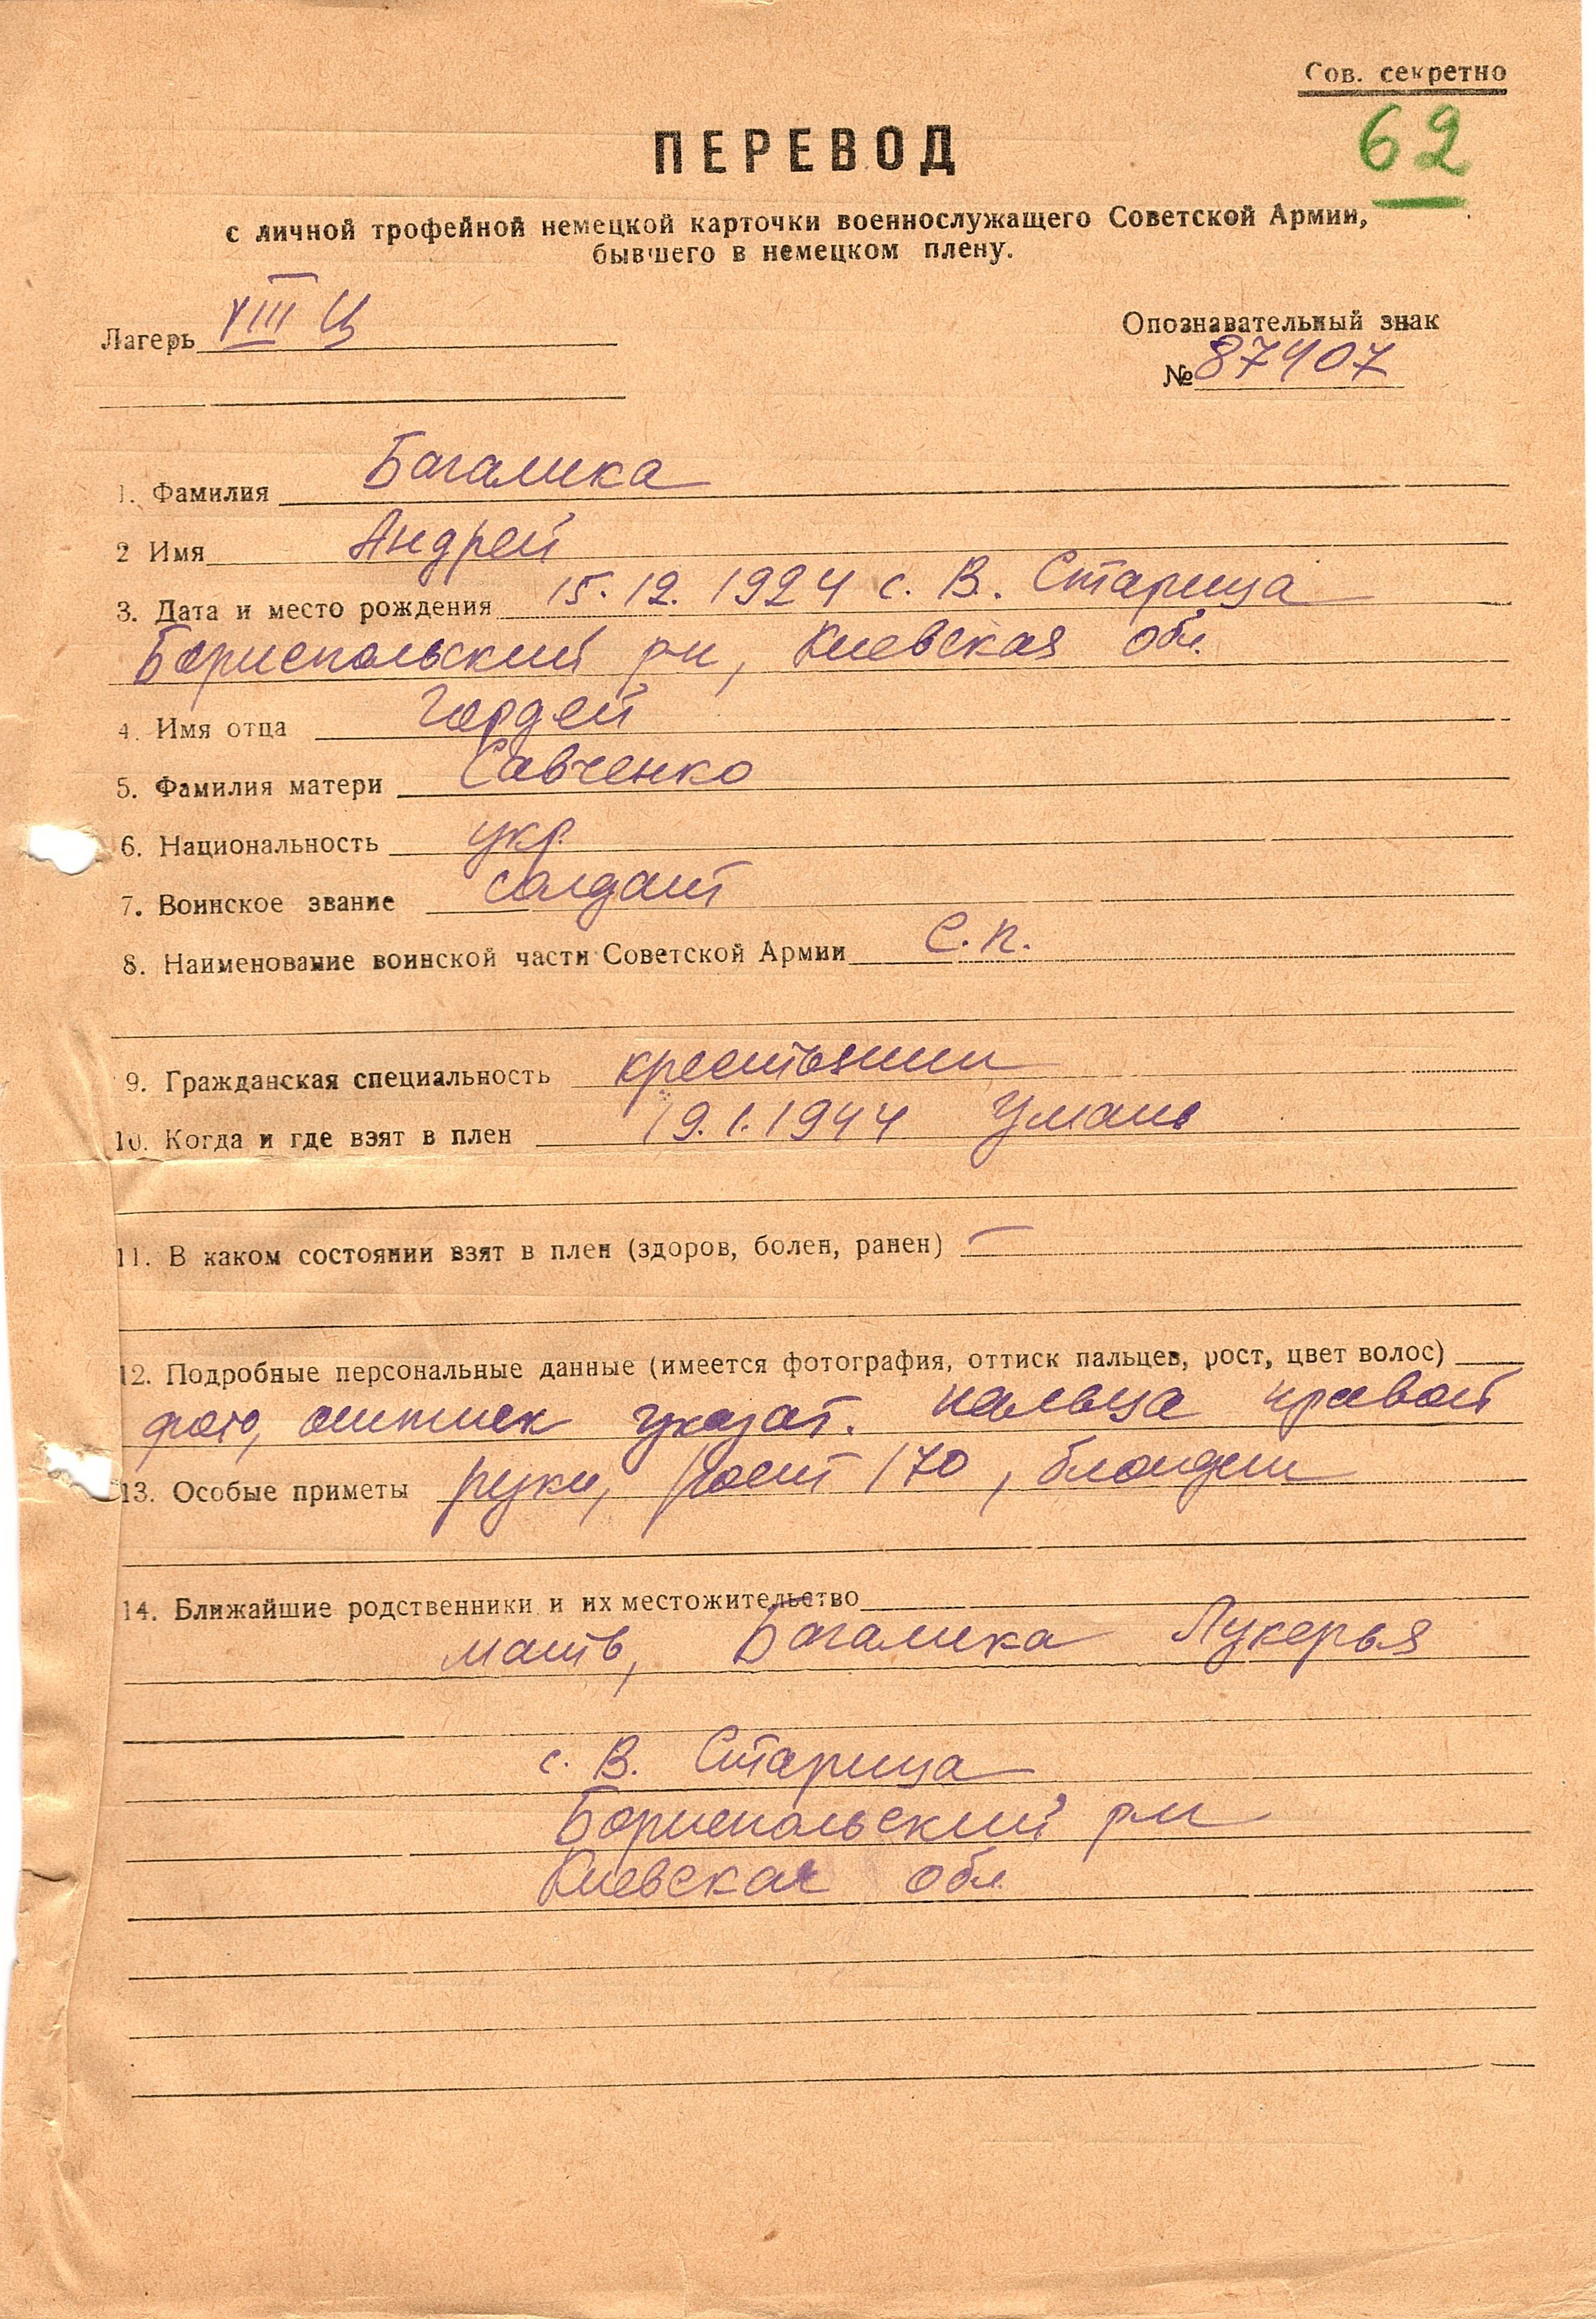 Сов. секретно
62
ПЕРЕВОД
с личной трофейной немецкой карточки военнослужащего Советской Армии,
бывшего в немецком плену.
Лагерь VIII Ц
Опознавательный знак
№ 87407
1. Фамилия Багалика
2 Имя Андрей
3. Дата и место рождения 15.12.1924 с. В. Старица
Бориспольский р-н, Киевская обл.
4. Имя отца Гордей
5. Фамилия матери Савченко
6. Национальность укр.
7. Воинское звание солдат
8. Наименование воинской части Советской Армии С.п.
9. Гражданская специальность крестьянин
10. Когда и где взят в плен 19.1.1944 Умань
11. В каком состоянии взят в плен (здоров, болен, ранен) —
12. Подробные персональные данные (имеется фотография, оттиск пальцев, рост, цвет волос)
фото, оттиск указат. пальца правой
13. Особые приметы руки, рост 170, блондин
14. Ближайшие родственники и их местожительство
мать, Багалика Лукерья
с. В. Старица
Бориспольский р-н
Киевская обл.